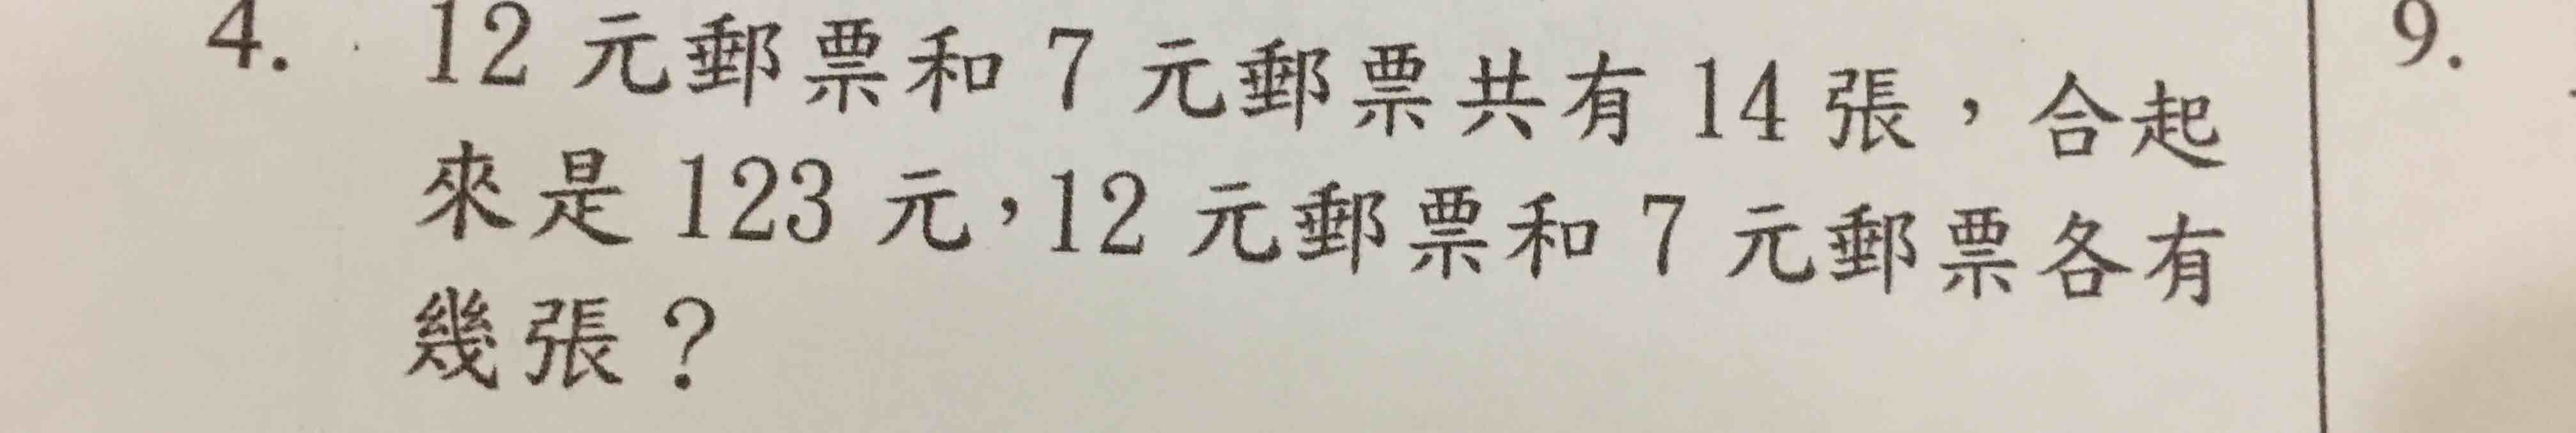 4. 12 元郵票和 7 元郵票共有 14 張，合起
來是 123 元，12 元郵票和 7 元郵票各有
幾張？
9.